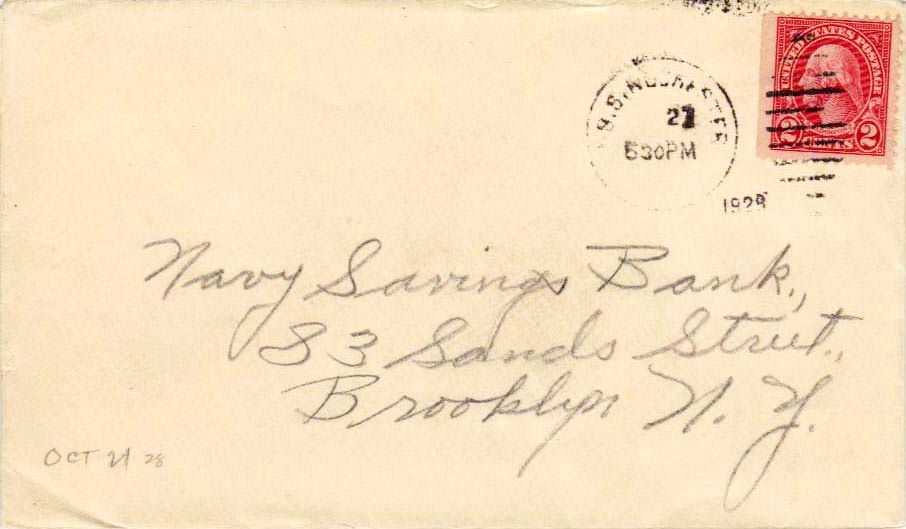 UNITED STATES POSTAGE
2 CENTS 2
U.S.S. ROCHESTER
530PM
1928
Navy Savings Bank,
83 Sands Street,
Brooklyn N. Y.
OCT 21 28